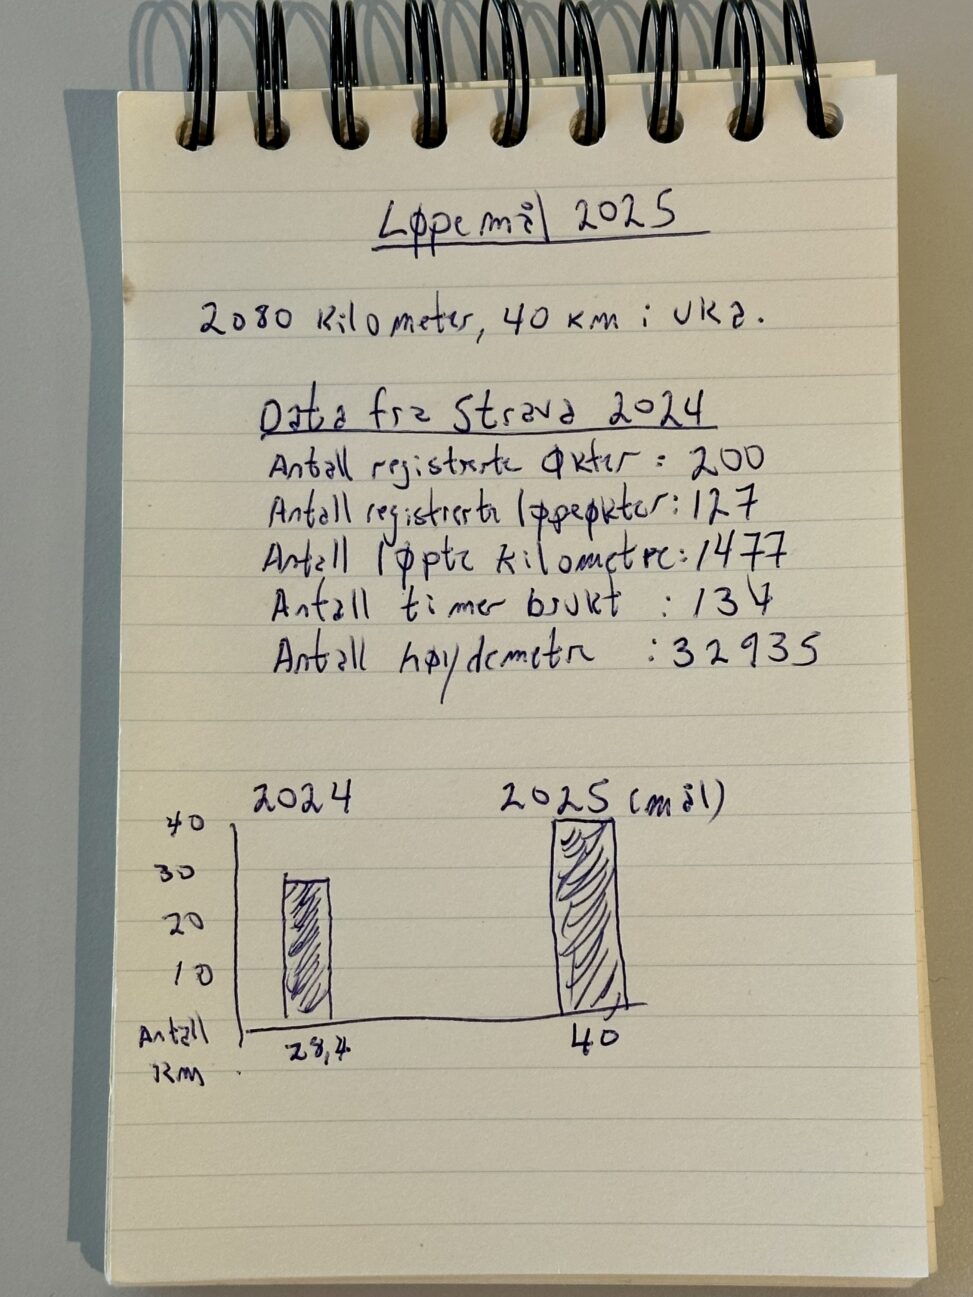 Løpemål 2025
2080 kilometer, 40 km i uka.
Data fra Strava 2024
Antall registrerte økter : 200
Antall registrerte løpeøkter: 127
Antall løpte kilometre: 1477
Antall timer brukt : 134
Antall høydemetre : 32935
2024 2025 (mål)
40
30
20
10
Antall
km
28,4 40